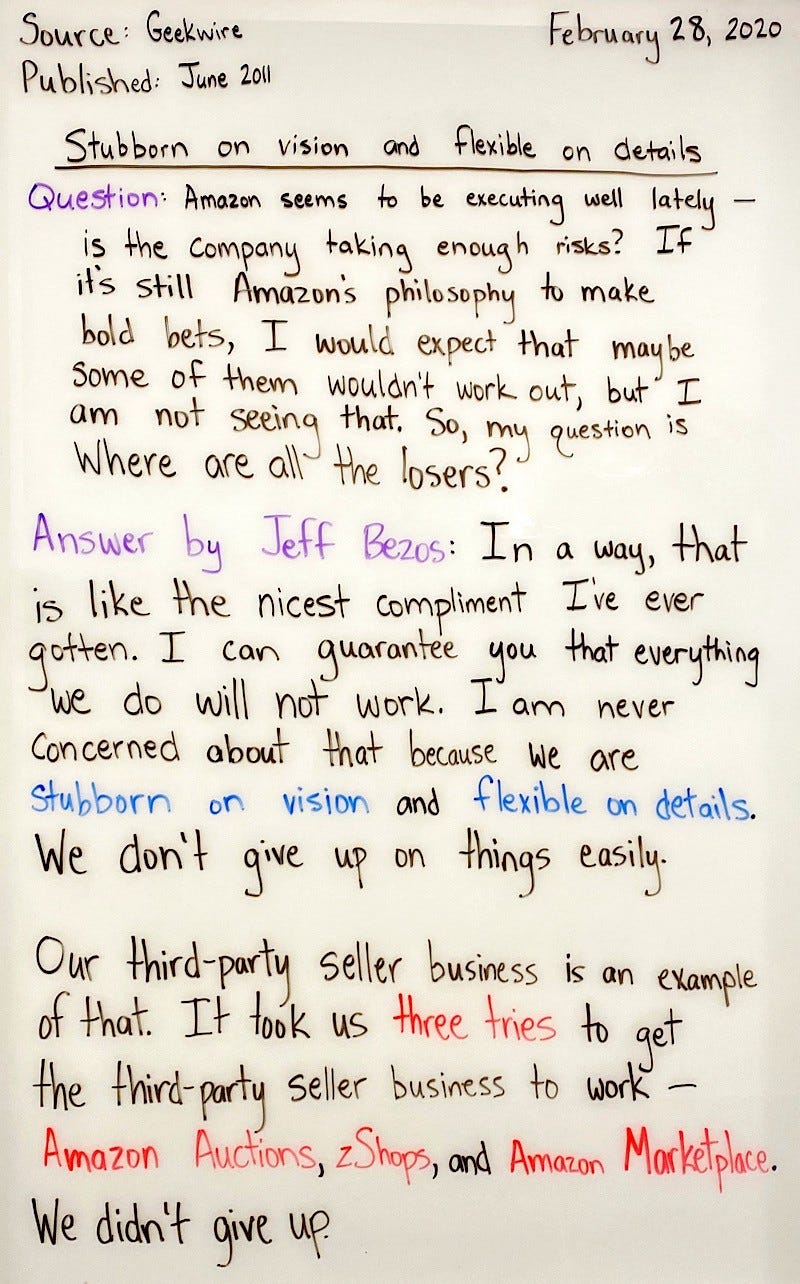 Source: Geekwire
February 28, 2020
Published: June 2011
Stubborn on vision and flexible on details
Question: Amazon seems to be executing well lately —
is the company taking enough risks? If
it's still Amazon's philosophy to make
bold bets, I would expect that maybe
some of them wouldn't work out, but I
am not seeing that. So, my question is
Where are all the losers?
Answer by Jeff Bezos: In a way, that
is like the nicest compliment I've ever
gotten. I can guarantee you that everything
we do will not work. I am never
concerned about that because we are
stubborn on vision and flexible on details.
We don't give up on things easily.
Our third-party seller business is an example
of that. It took us three tries to get
the third-party seller business to work —
Amazon Auctions, zShops, and Amazon Marketplace.
We didn't give up.